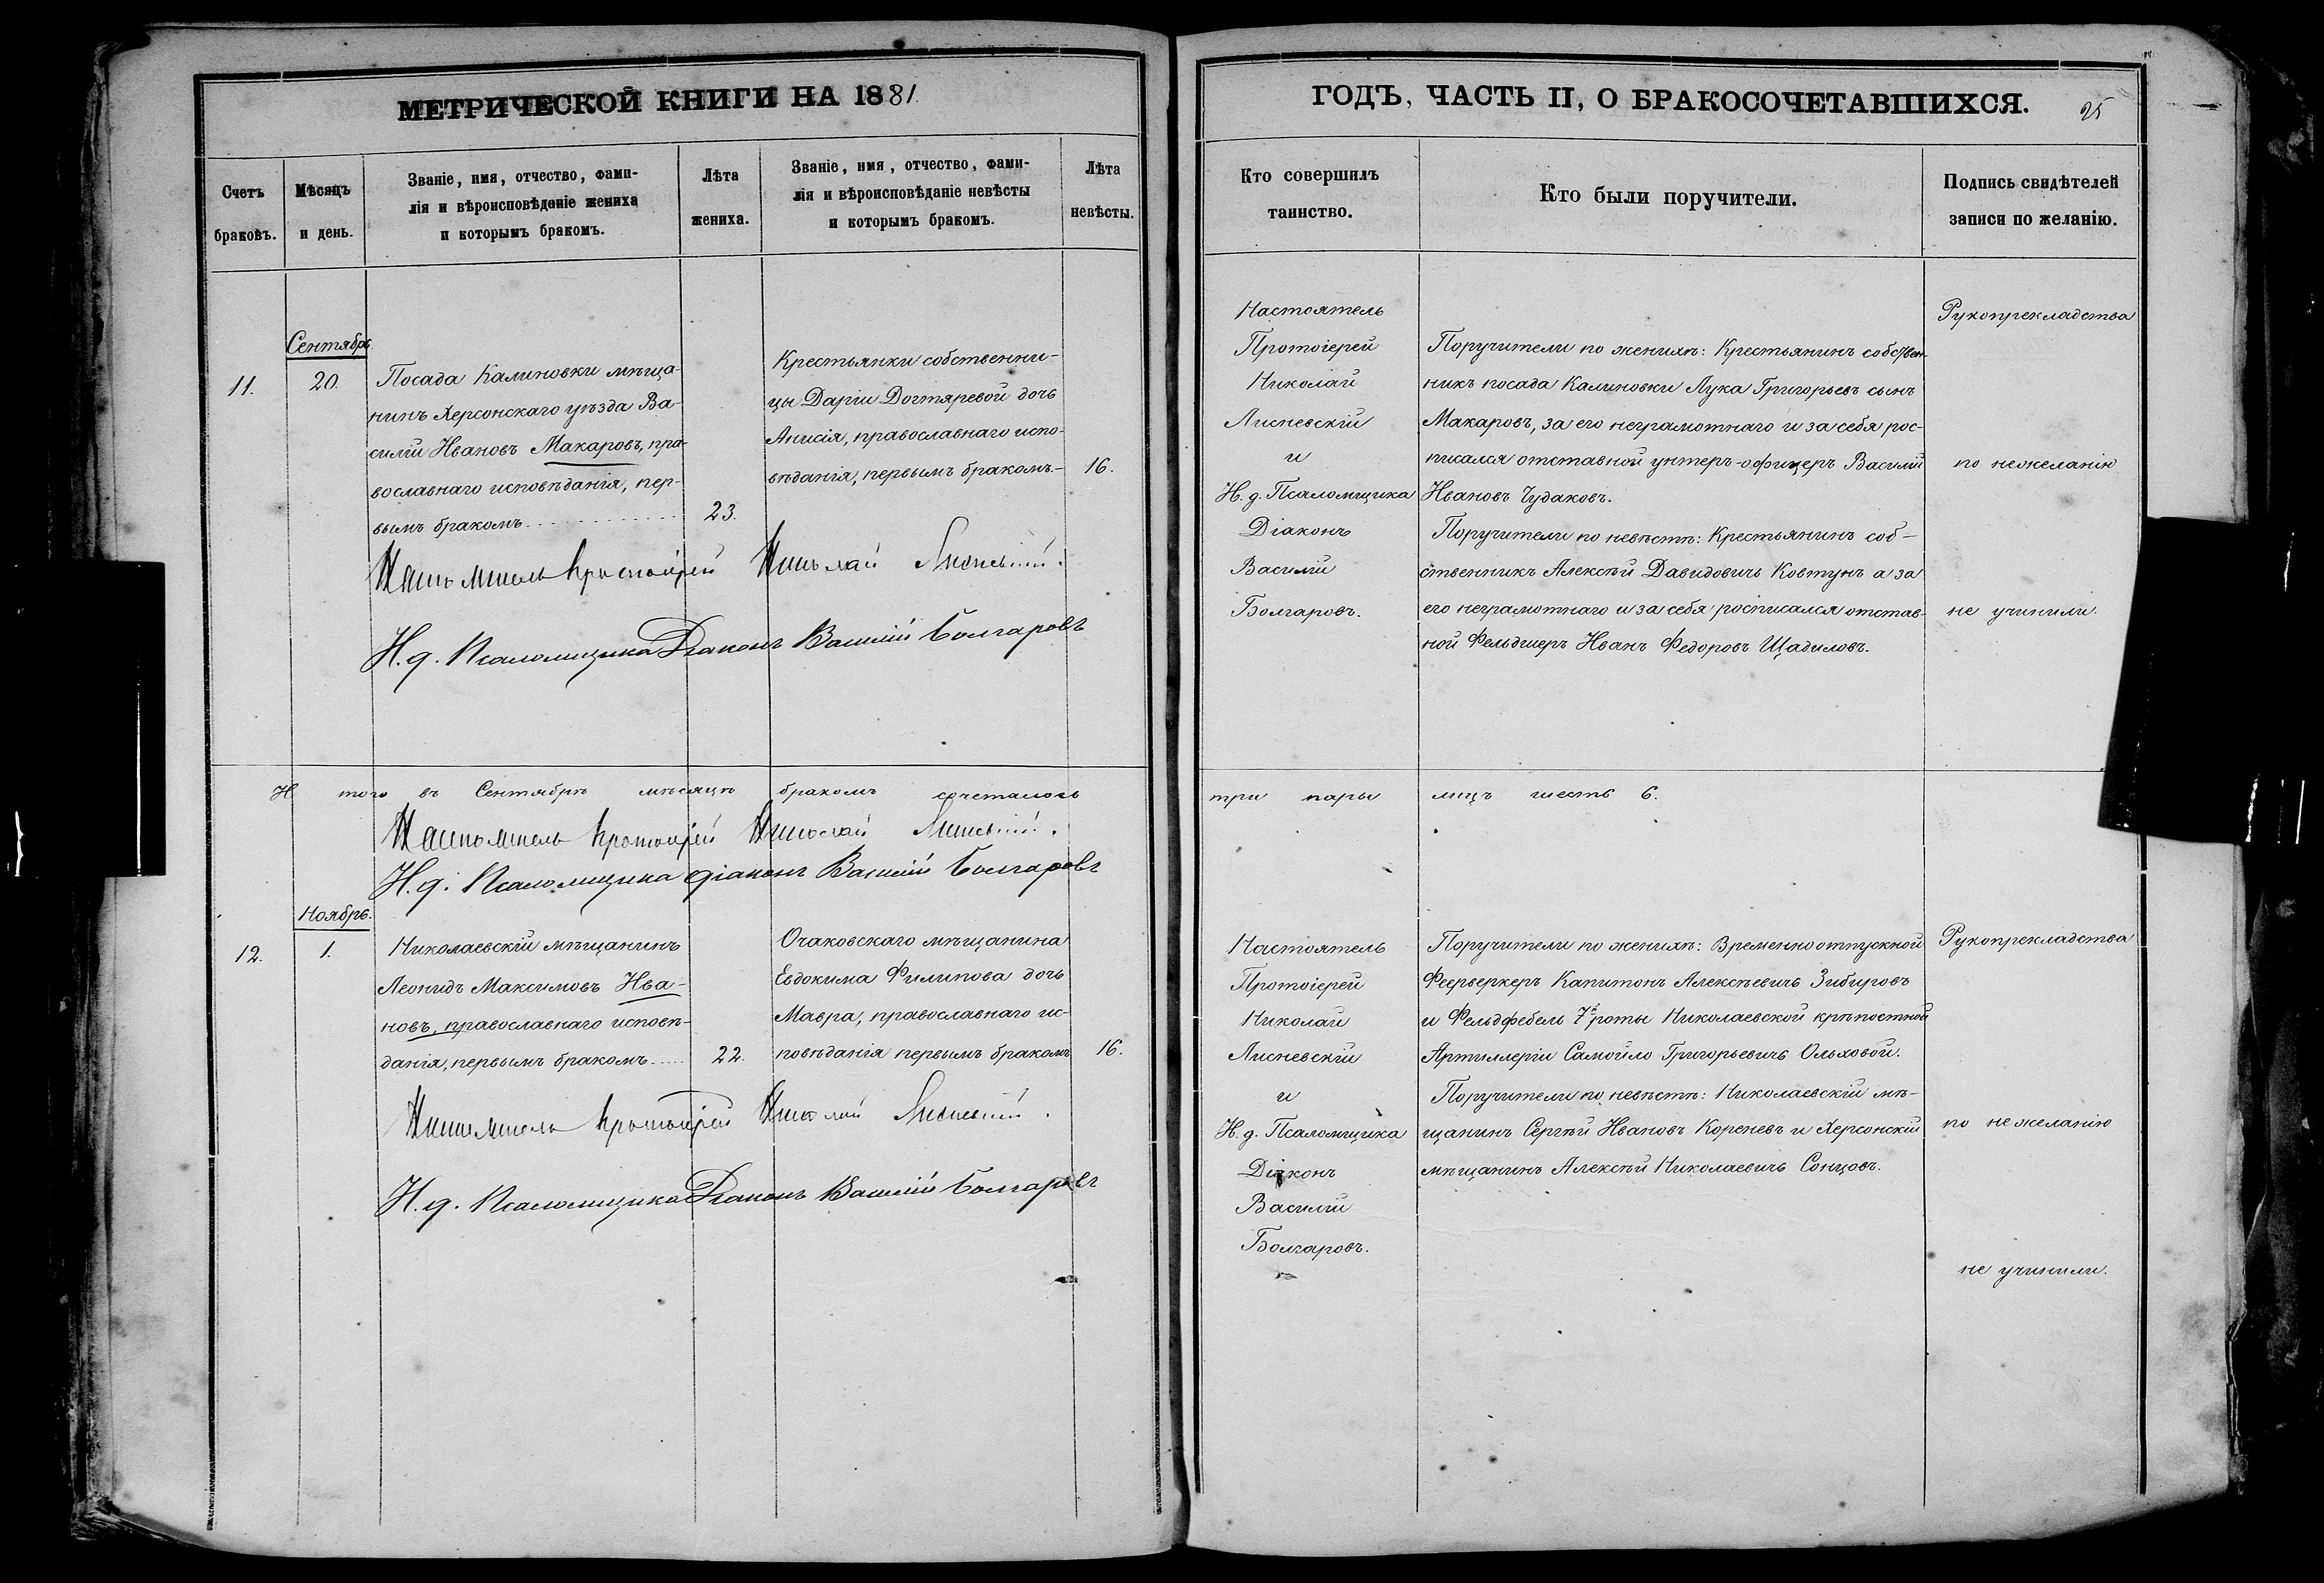 МЕТРИЧЕСКОЙ КНИГИ НА 1881.
Счетъ
браковъ.
Мѣсяцъ
и день.
Званіе, имя, отчество, фами-
лія и вѣроисповѣданіе жениха
и которымъ бракомъ.
Лѣта
жениха.
Званіе, имя, отчество, фами-
лія и вѣроисповѣданіе невѣсты
и которымъ бракомъ.
Лѣта
невѣсты.
11.
Сентябрь
20.
Посада Калиновки мѣща-
нинъ Херсонскаго уѣзда Ва-
силій Ивановъ Макаровъ, пра-
вославнаго исповѣданія, пер-
вымъ бракомъ
23.
Крестьянки собственни-
цы Даріи Догтяревой дочь
Анисія, православнаго испо-
вѣданія, первымъ бракомъ-
16.
Настоятель Протоіерей Николай Лисневскій.
И. д. Псаломщика Діаконъ Василій Болгаровъ
Итого въ Сентябрѣ мѣсяцѣ бракомъ сочеталось
Настоятель Протоіерей Николай Лисневскій.
И. д. Псаломщика діаконъ Василій Болгаровъ
12.
Ноябрь.
1.
Николаевскій мѣщанинъ
Леонидъ Максимовъ Ива-
новъ, православнаго исповѣ-
данія, первымъ бракомъ
22.
Очаковскаго мѣщанина
Евдокима Филипова дочь
Мавра, православнаго ис-
повѣданія первымъ бракомъ
16.
Настоятель Протоіерей Николай Лисневскій.
И. д. Псаломщика Діаконъ Василій Болгаровъ
ГОДЪ, ЧАСТЬ II, О БРАКОСОЧЕТАВШИХСЯ.
25
Кто совершилъ
таинство.
Кто были поручители.
Подпись свидѣтелей
записи по желанію.
Настоятель
Протоіерей
Николай
Лисневскій
и
И. д. Псаломщика
Діаконъ
Василій
Болгаровъ.
Поручители по женихѣ: Крестьянинъ собствен-
никъ посада Калиновки Лука Григорьевъ сынъ
Макаровъ, за его неграмотнаго и за себя рос-
писался отставной унтеръ-офицеръ Василій
Ивановъ Чудаковъ.
Поручители по невѣстѣ: Крестьянинъ соб-
ственникъ Алексѣй Давидовичъ Ковтунъ а за
его неграмотнаго и за себя росписался отстав-
ной Фельдшеръ Иванъ Федоровъ Щадиловъ.
Рукоприкладства
по нежеланію
не учинили.
три пары лицъ шесть 6.
Настоятель
Протоіерей
Николай
Лисневскій
и
И. д. Псаломщика
Діаконъ
Василій
Болгаровъ.
Поручители по женихѣ: Временноотпускной
Феерверкеръ Капитонъ Алексѣевичъ Зибировъ
и Фельдфебель 7й роты Николаевской крѣпостной
Артиллеріи Самойло Григорьевичъ Ольховой.
Поручители по невѣстѣ: Николаевскій мѣ-
щанинъ Сергѣй Ивановъ Кореневъ и Херсонскій
мѣщанинъ Алексѣй Николаевичъ Сонцовъ.
Рукоприкладства
по нежеланію
не учинили.